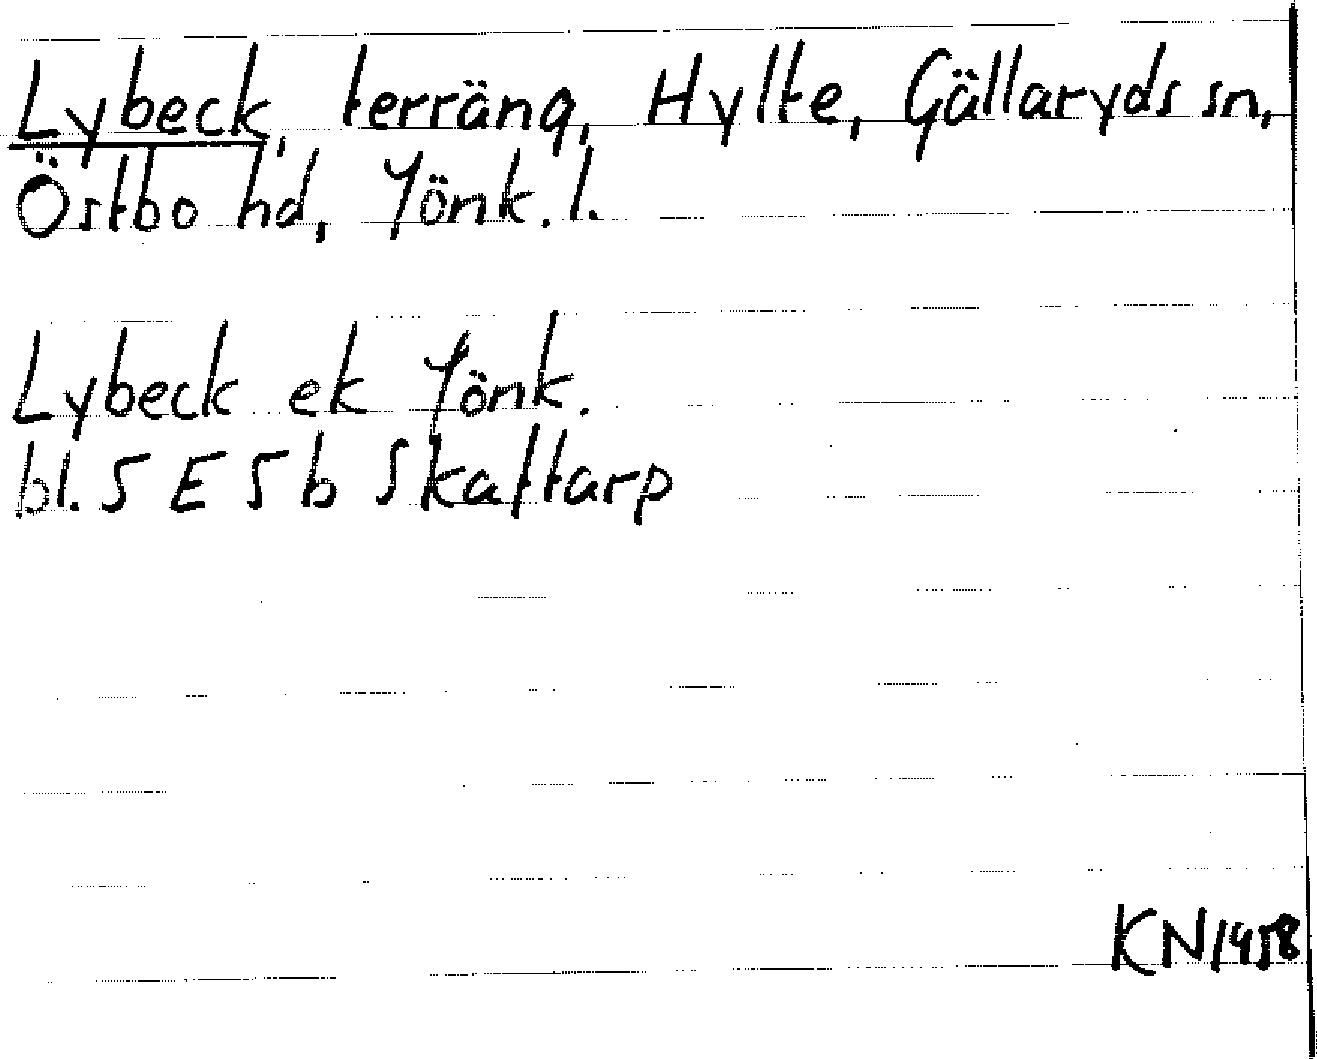 Lybeck, terräng, Hylte, Gällaryds sn,
Östbo hd, Jönk. l.
Lybeck ek Jönk.
bl. 5 E 5 b Skaftarp
KN 1958